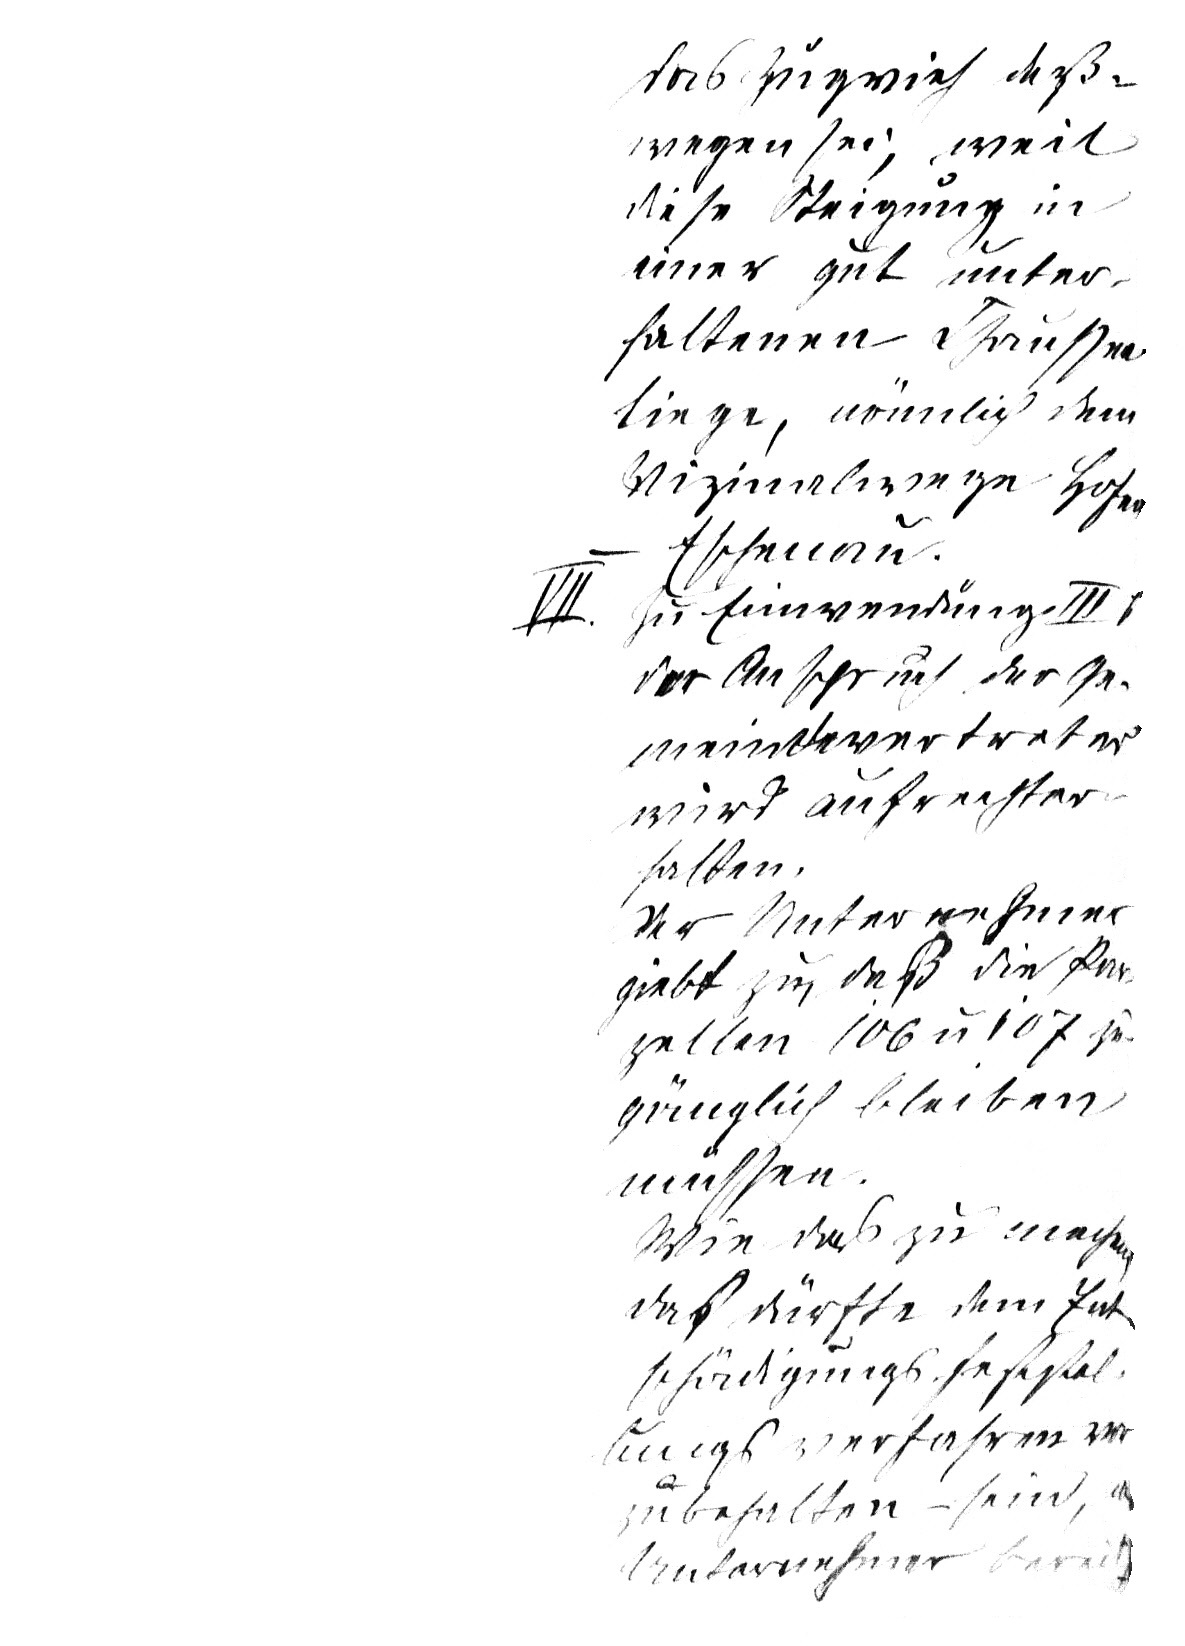 das Zugvieh deß-
wegen sei, weil
diese Steigung in
einer gut unter-
haltenen Chaussee
liege, nämlich dem
Vizinalwege Hofen
– Eschenau.
VII. Zu Einwendung III
der Anspruch der Ge-
meindevertreter
wird aufrechter-
halten.
Der Unternehmer
giebt zu, daß die Par-
zellen 106 u 107 zu-
gänglich bleiben
müssen.
Wie das zu machen
das dürfte dem Ent
schädigungsfeststel-
lungsverfahren vor
zubehalten sein,
Unternehmer bereits